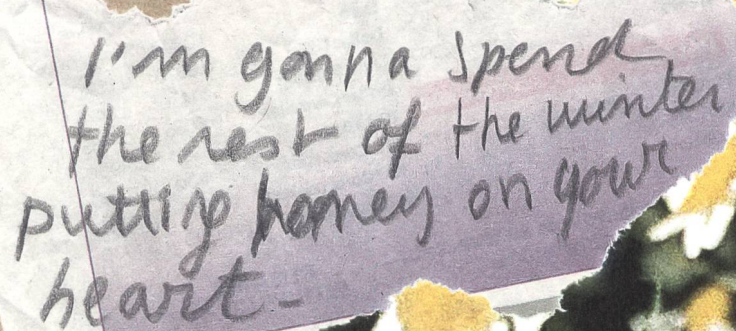 I'm gonna spend
the rest of the winter
putting honey on your
heart -